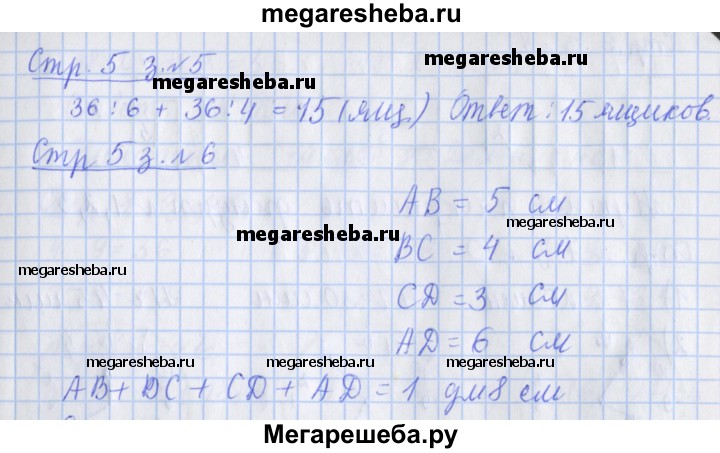 megaresheba.ru
Стр. 5 з. №5
megaresheba.ru
megaresheba.ru
36 : 6 + 36 : 4 = 15 (ящ.) Ответ: 15 ящиков.
Стр 5 з. №6
AB = 5 см
megaresheba.ru
megaresheba.ru
BC = 4 см
megaresheba.ru
CD = 3 см
AD = 6 см
megaresheba.ru
megaresheba.ru
megaresheba.ru
AB + BC + CD + AD = 1 дм 8 см
Мегарешеба.ру